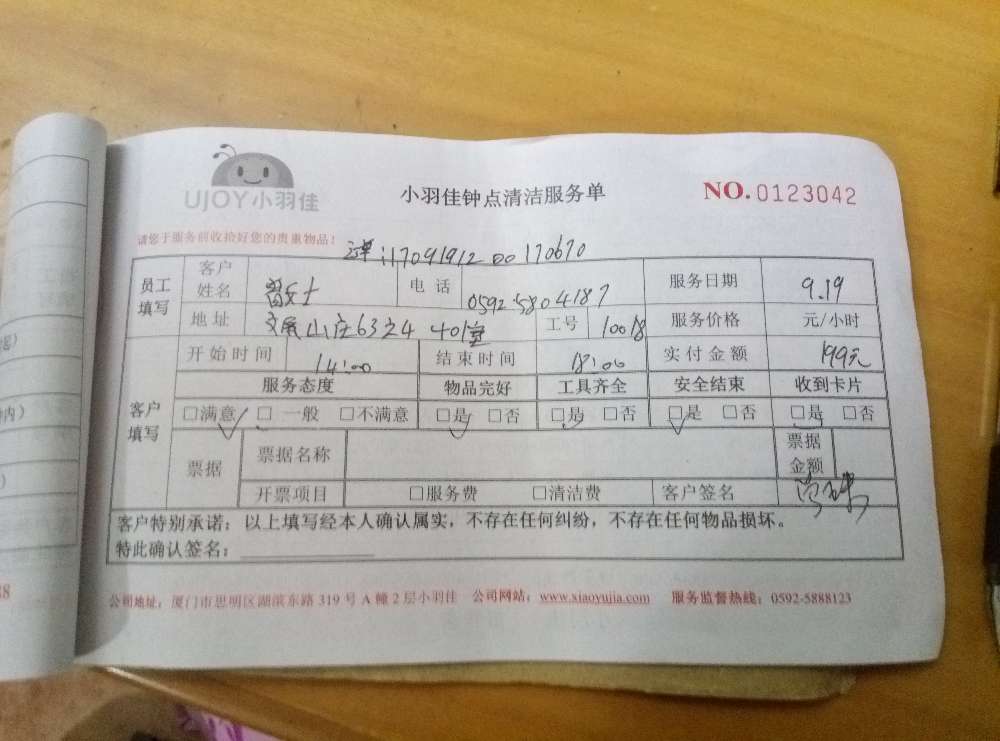 UJOY小羽佳
小羽佳钟点清洁服务单
NO.0123042
请您于服务前收拾好您的贵重物品!
1709191200170670
员工填写 客户姓名 女士 电话 0592 5804187 服务日期 9.19
地址 山庄63之4 401室 工号 10018 服务价格 元/小时
客户填写 开始时间 14:00 结束时间 18:00 实付金额 199元
服务态度 物品完好 工具齐全 安全结束 收到卡片
□满意 □一般 □不满意 □是 □否 □是 □否 □是 □否 □是 □否
票据 票据名称 票据金额
开票项目 □服务费 □清洁费 客户签名
客户特别承诺:以上填写经本人确认属实,不存在任何纠纷,不存在任何物品损坏。
特此确认签名:
公司地址:厦门市思明区湖滨东路 319 号 A 幢 2 层小羽佳 公司网站:www.xiaoyujia.com 服务监督热线:0592-5888123